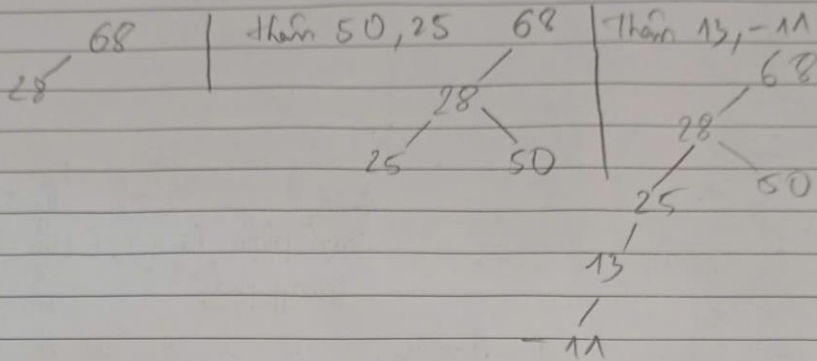 68
28
thêm 50, 25
68
28
25 50
thêm 13, -11
68
28
50
25
13
-11